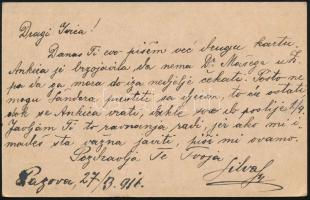 Dragi Ivica!
Danas Ti evo pišem već drugu kartu.
Ankica je brzojavila da nema Dr. Masega u Z.
pa da ga mora do iza nedjelje čekati. Pošto ne
mogu Šandora pustiti sa djecom, to će ostati
dok se Ankica vrati, dakle svo ib poslije 1/9.
Javljam Ti to ravnanja radi, jer ako mi i-
madeš šta važna javiti, piši mi ovamo.
Pozdravlja Te Tvoja
Silva
Pazova 27/8. 916.